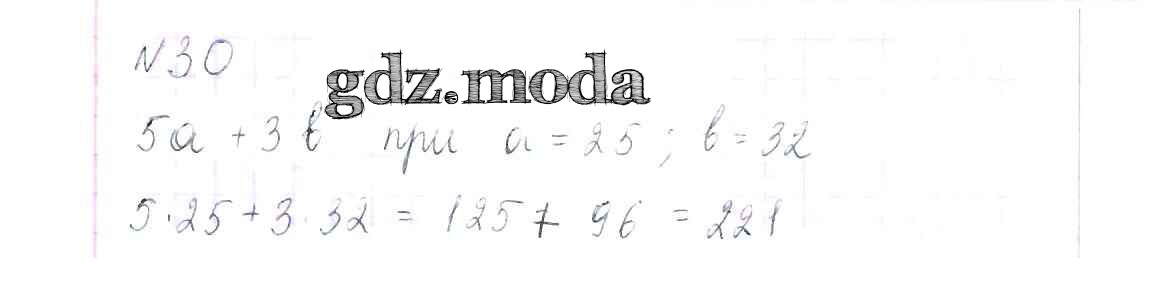 N30
gdz.moda
5a + 3b при a = 25 ; b = 32
5·25 + 3·32 = 125 + 96 = 221